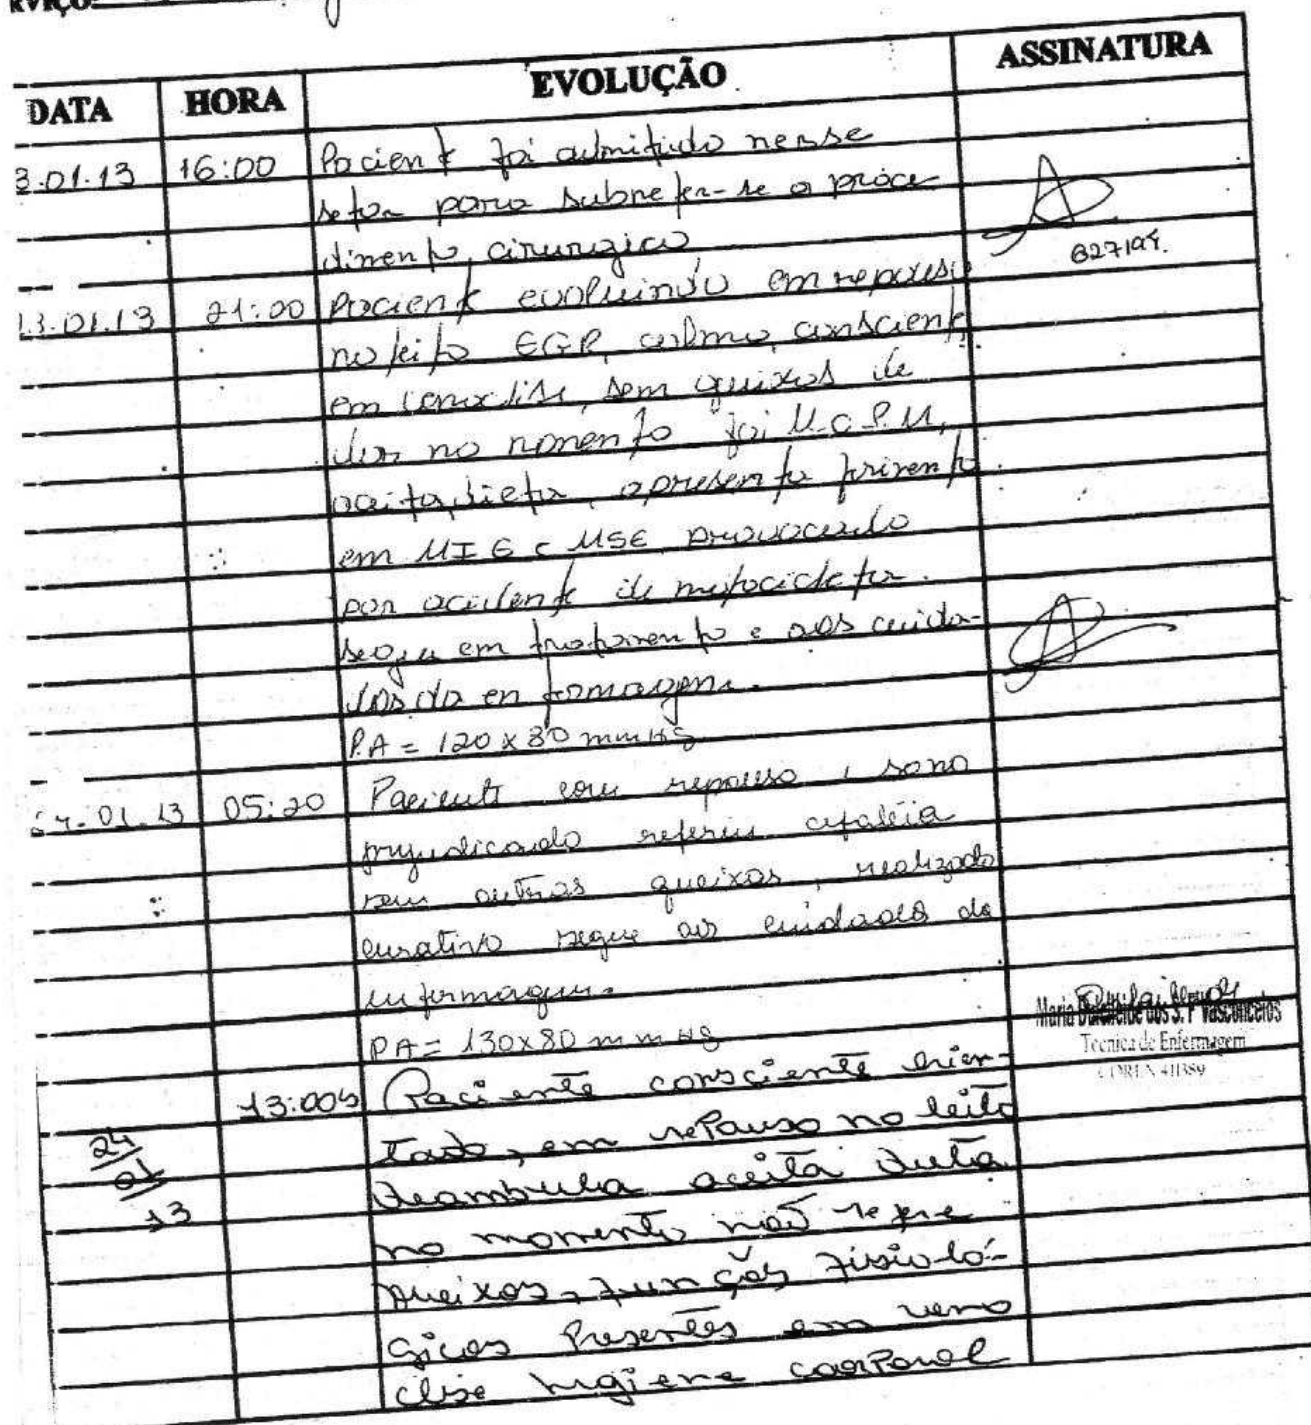 RVIÇO
DATA HORA EVOLUÇÃO ASSINATURA
3.01.13 16:00 Pacient foi admitido nesse
setor para submeter-se a proce
dimento cirurgico
827194.
13.01.13 21:00 Pacient evoluindo em repouso
no leito EGR, calmo, conscient,
em venoclise, sem queixas de
dor no momento foi
aceita dieta, apresenta ferimento
em MIE e MSE provocado
por acident de motocicleta.
segue em tratamento e aos cuida-
dos da enfermagem.
P.A = 120 x 80 mmHg
4.01.13 05:20 Paciente com repouso e sono
prejudicado referiu cefaléia
sem outras queixas, realizado
curativo segue aos cuidados da
enfermagem.
PA = 130x80 mmHg
Maria dos S. P Vasconcelos
Tecnica de Enfermagem
COREN 411389
24/01/13 13:00h Paciente consciente orien-
tado, em repouso no leito
deambula aceita dieta
no momento não refere
queixas, funções fisioló-
gicas presentes em veno
clise higiene corporal